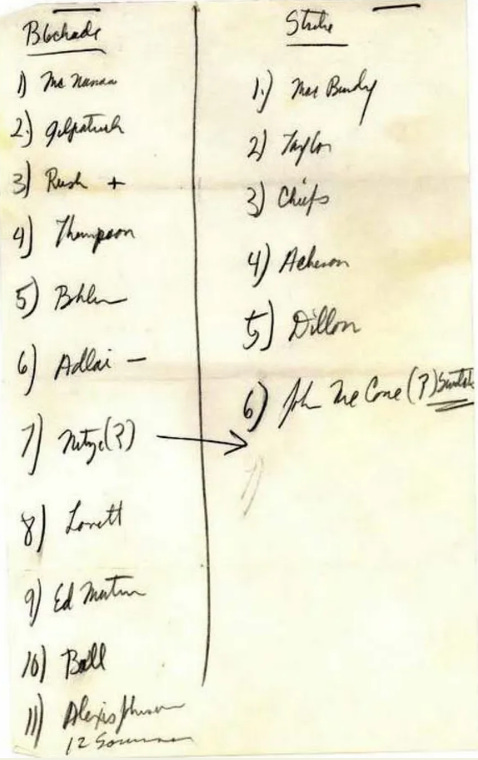 Blockade
1) McNamara
2) Gilpatrick
3) Rusk +
4) Thompson
5) Bohlen
6) Adlai -
7) Nitze (?) →
8) Lovett
9) Ed Martin
10) Ball
11) Alexis Johnson
12 Sorensen
Strike
1.) Mac Bundy
2) Taylor
3) Chiefs
4) Acheson
5) Dillon
6) John McCone (?) Switch
7)